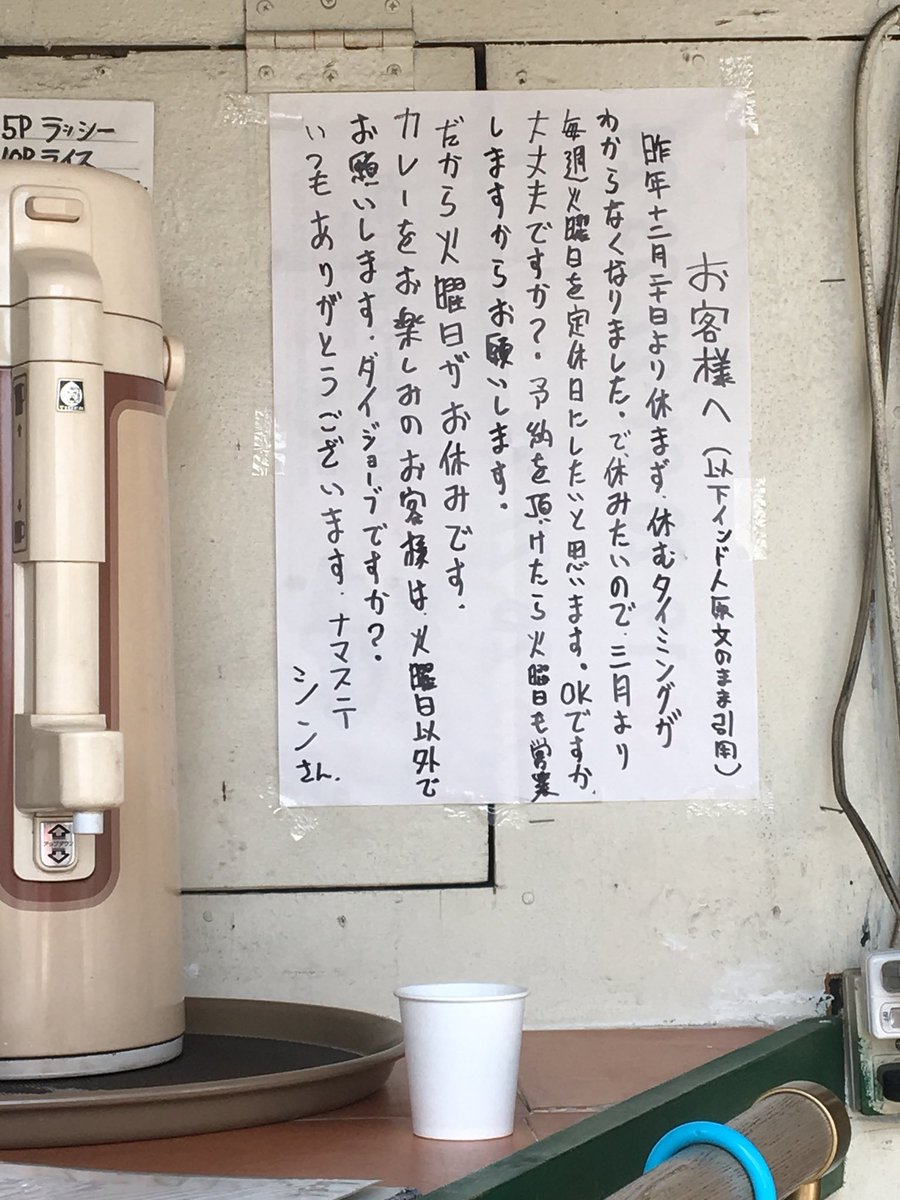 お客様へ(以下インド人原文のまま引用)
昨年十二月二十日より休まず、休むタイミングが
わからなくなりました。で休みたいので、三月より
毎週火曜日を定休日にしたいと思います。OKですか、
大丈夫ですか?。予納を頂けたら火曜日も営業
しますからお願いします。
だから火曜日がお休みです.
カレーをお楽しみのお客様は、火曜日以外で
お願いします.ダイジョーブですか?.
いつもありがとうございます.ナマステ
シンさん.
5P ラッシー
10P ライス
アップダウン